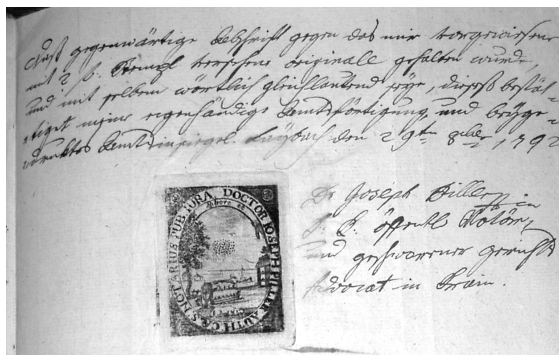 Daß gegenwärtige Abschrift gegen das mir vorgewiesene
mit versehene originall gehalten wurde,
und mit selbem wörtlich gleichlautend seye, dieses bestät-
tiget meine eigenhändige Amtsfertigung, und beyge-
drucktes Amtsinsiegel. Laybach den 29ten 8ber 1792
Dr Joseph Piller
öffentl Notar
und geschworener gerichts
Advocat in Krain.
DOCTOR JOSEPH PILLER AUTH CÆS NOTARIUS PUB IURA